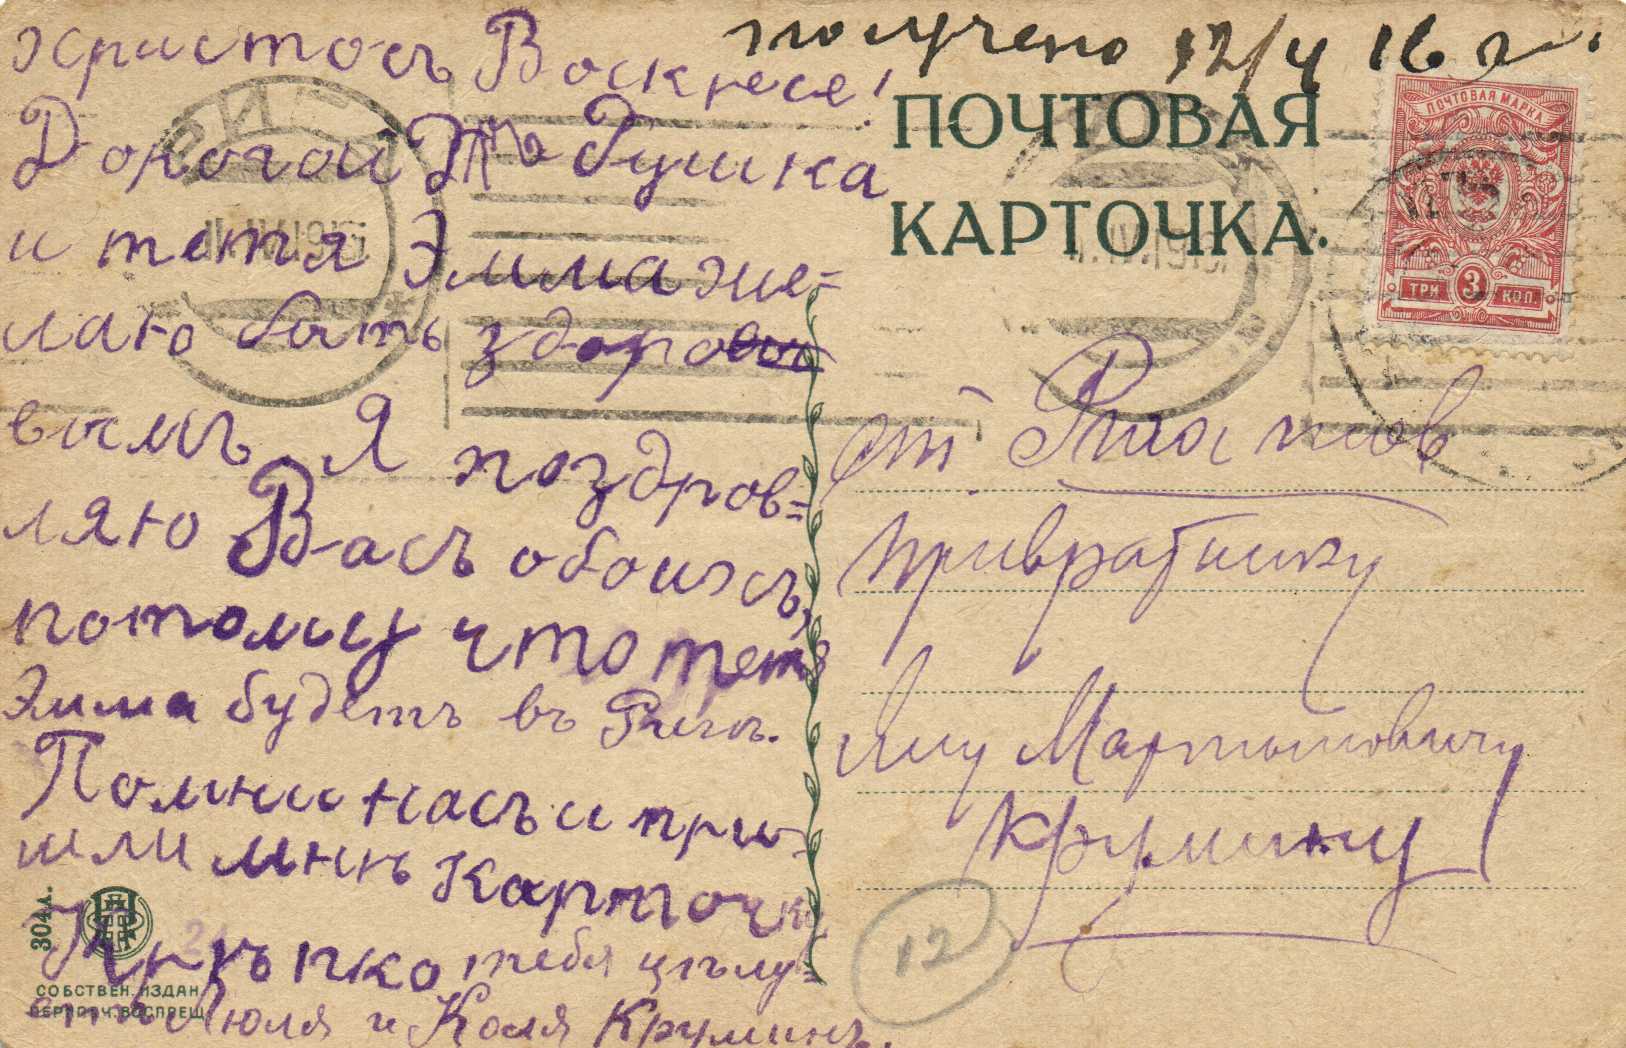 получено 12/4 16 г.
Христосъ Воскресе!
Дорогой Дѣдушка
и тетя Эмма же=
лаю быть здоро
вымъ. Я поздров=
ляю Васъ обоихъ,
потому что тетя
Эмма будетъ въ Ригѣ.
Помни насъ и при=
шли мнѣ карточку
Крѣпко тебя цѣлу=
етъ Юля и Коля Круминъ.
ПОЧТОВАЯ
КАРТОЧКА.
ПОЧТОВАЯ МАРКА
ТРИ 3 КОП
ст.
привратнику
Яну Мартыновичу
Крумину
12
304 А.
СОБСТВЕН. ИЗДАН.
ПЕРЕПЕЧ. ВОСПРЕЩ.